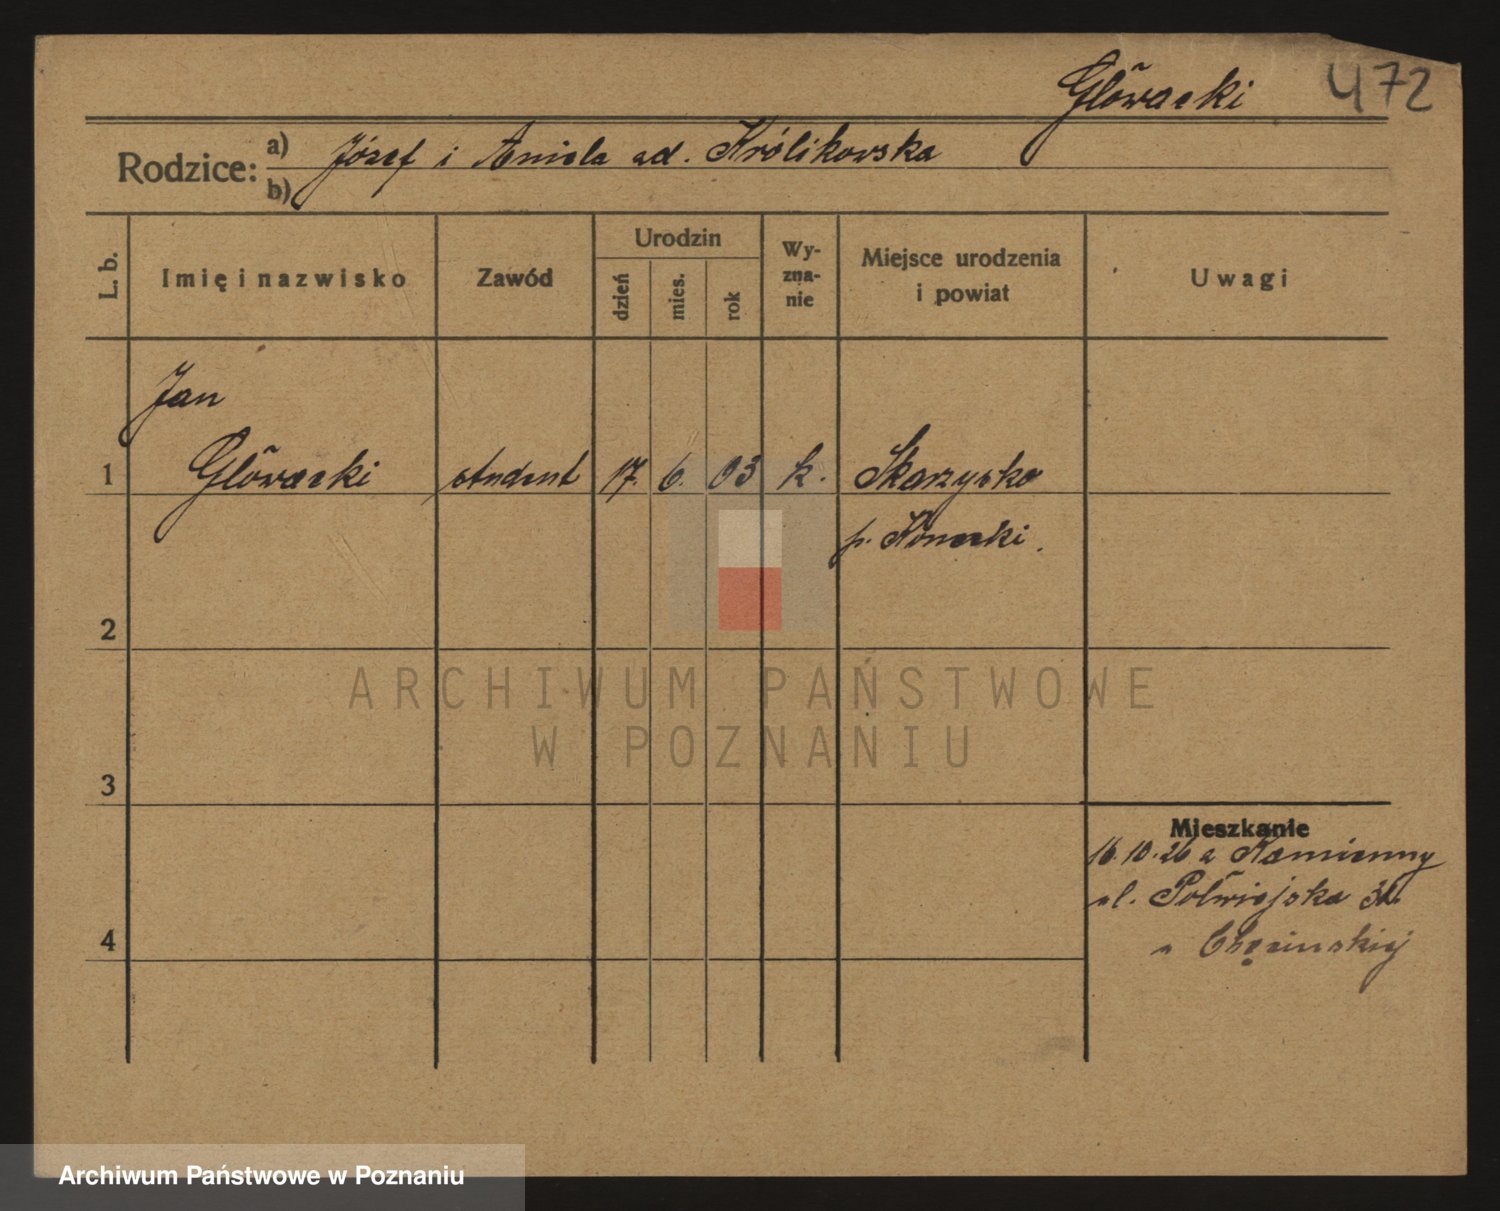 Głõwacki 472
Rodzice: a) Józef i Aniela ad. Królikowska
b)
L. b. Imię i nazwisko Zawód Urodzin dzień mies. rok Wy-zna-nie Miejsce urodzenia i powiat Uwagi
Jan
1 Głõwacki student 17. 6. 03 k. Skarzysko
p. Konecki.
2
ARCHIWUM PAŃSTWOWE
W POZNANIU
3
Mieszkanie
16.10.26 z Kamienny
ul. Półwiejska
4
u
Archiwum Państwowe w Poznaniu